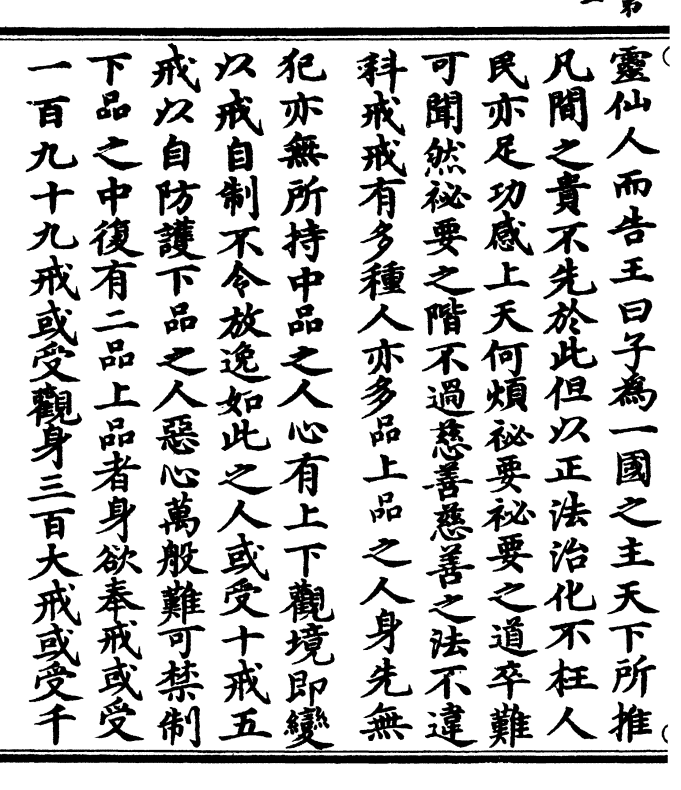 靈仙人而告王曰子為一國之主天下所推
凡間之貴不先於此但以正法治化不枉人
民亦足功感上天何煩祕要祕要之道卒難
可聞然祕要之階不過慈善慈善之法不違
科戒戒有多種人亦多品上品之人身先無
犯亦無所持中品之人心有上下觀境即變
以戒自制不令放逸如此之人或受十戒五
戒以自防護下品之人惡心萬般難可禁制
下品之中復有二品上品者身欲奉戒或受
一百九十九戒或受觀身三百大戒或受千